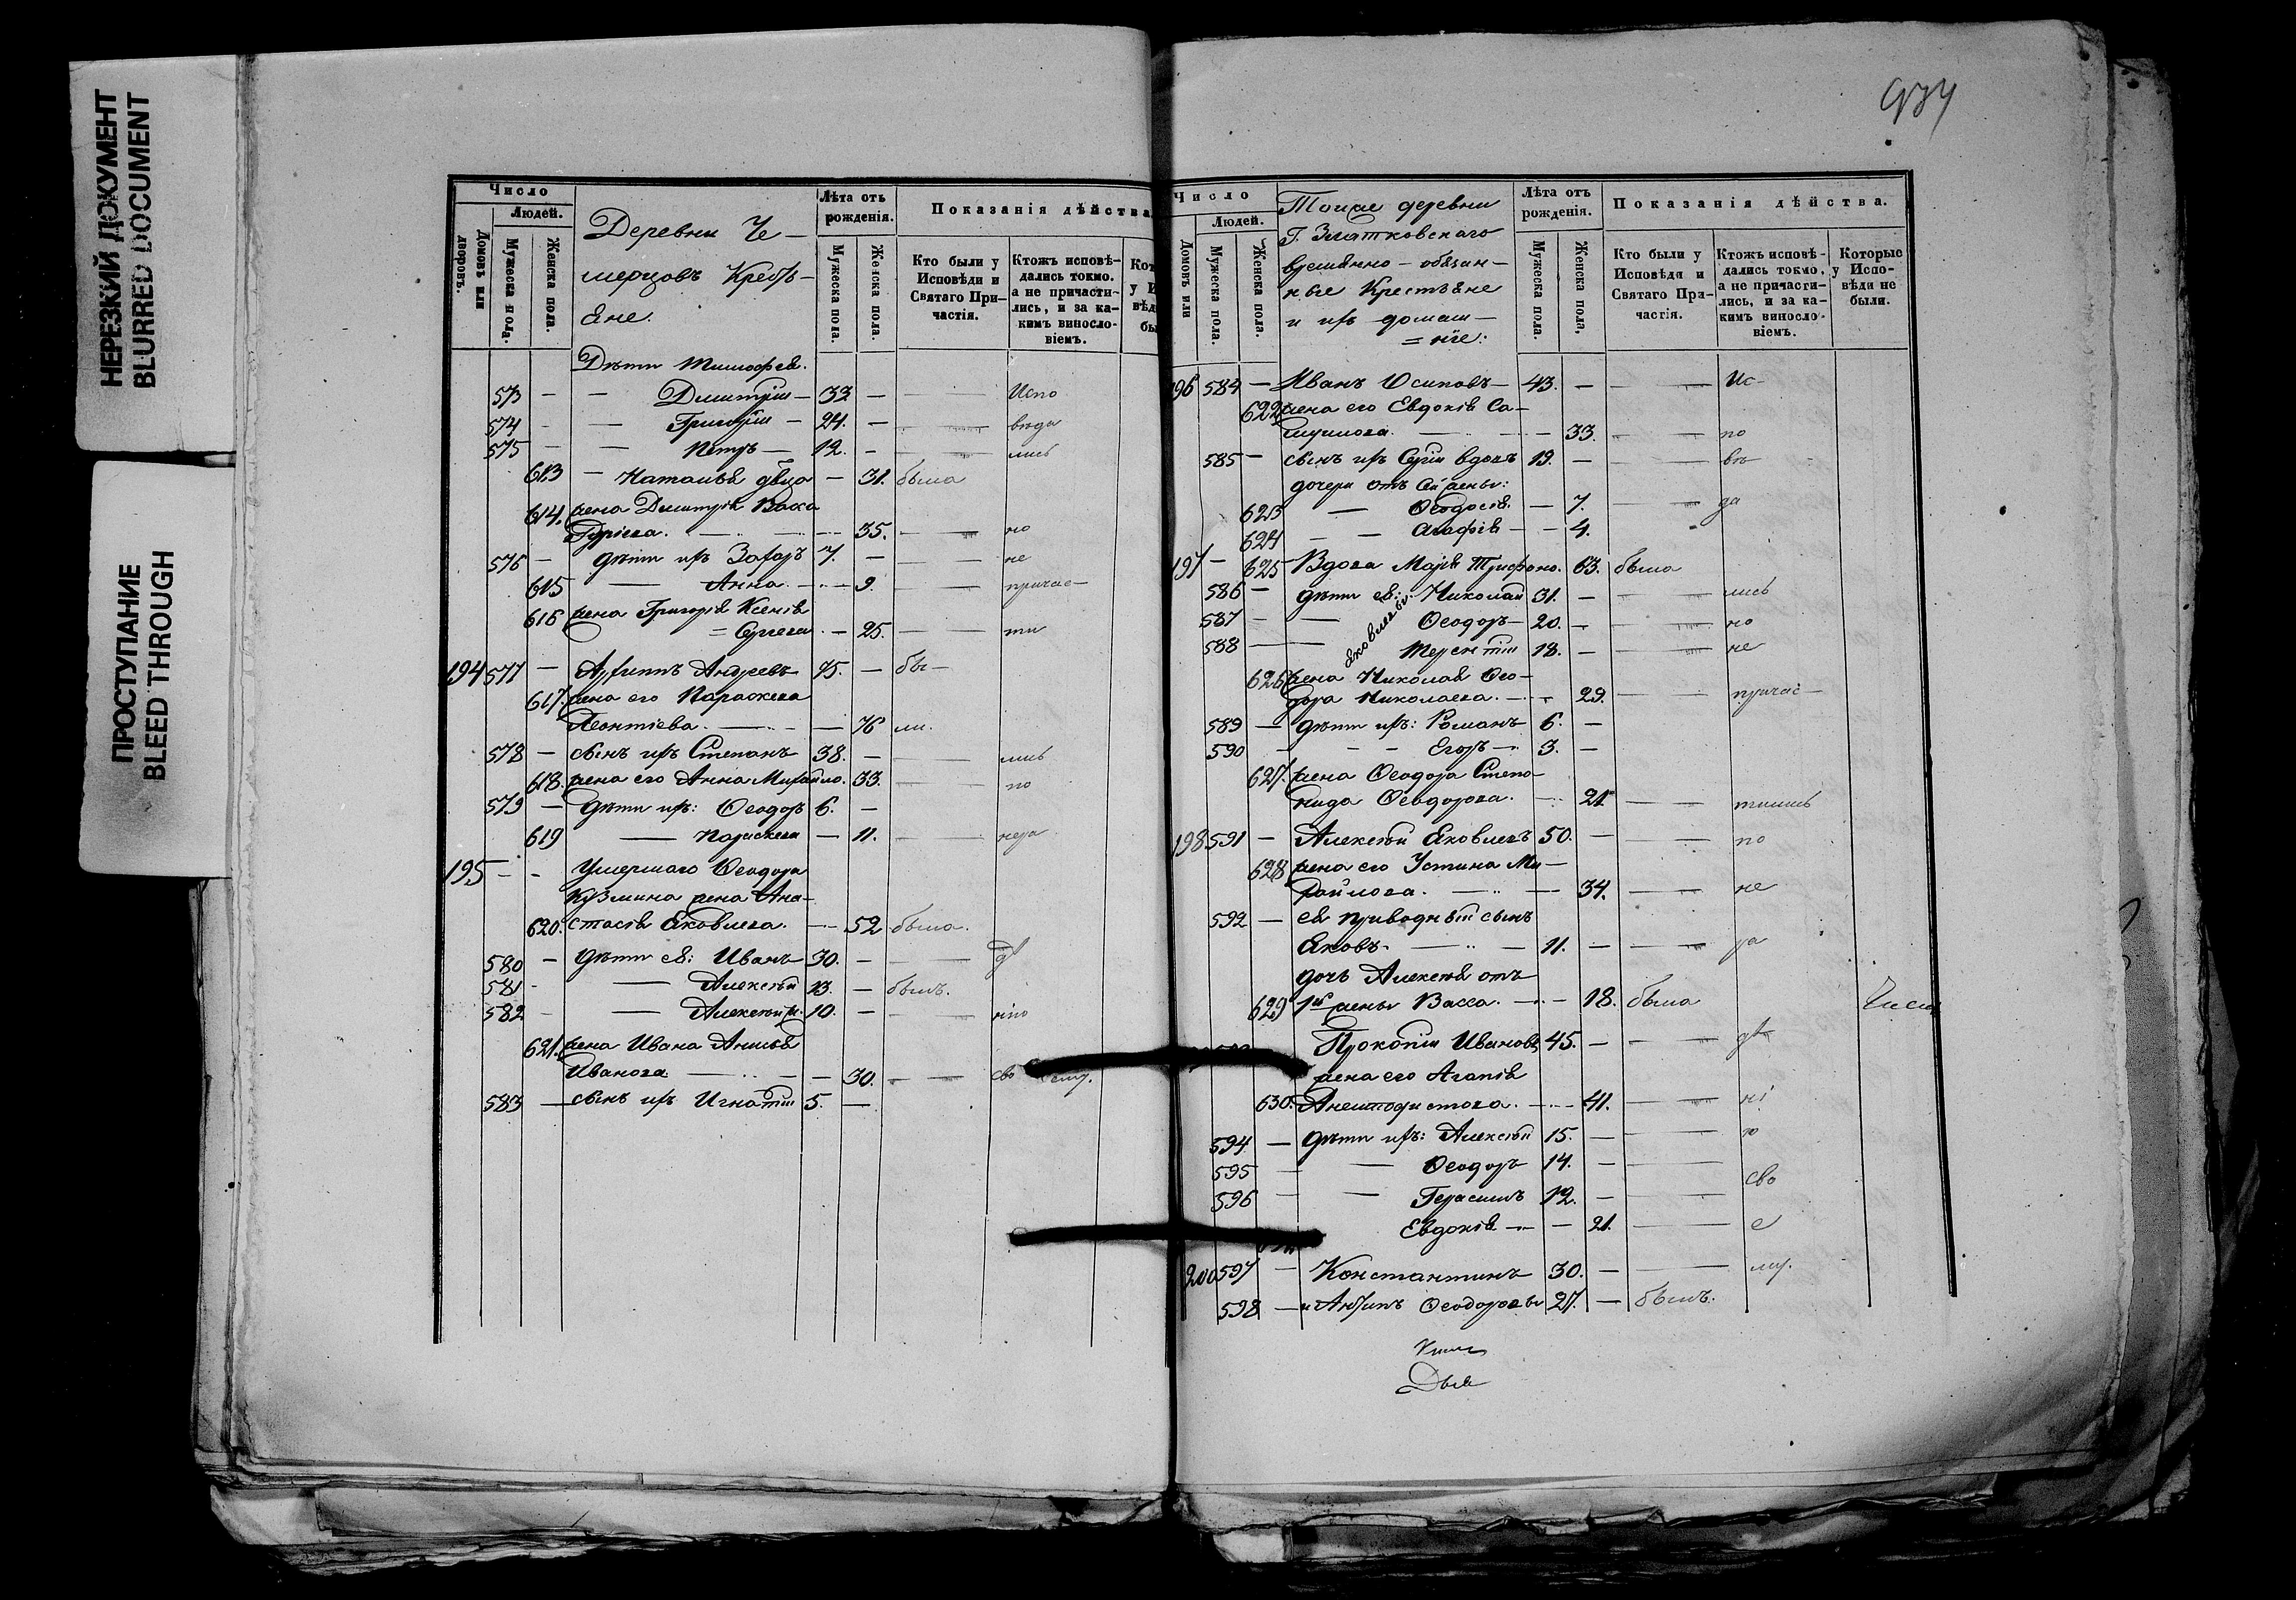 НЕРЕЗКИЙ ДОКУМЕНТ
BLURRED DOCUMENT
ПРОСТУПАНИЕ
BLEED THROUGH
Число
Людей.
Домовъ или дворовъ.
Мужеска пола.
Женска пола.
Деревни Че-
мерцовъ Кресть-
яне.
Лѣта отъ рожденія.
Мужеска пола.
Женска пола.
Показанія дѣйства
Кто были у Исповѣди и Святаго При-частія.
Ктожъ исповѣ-дались токмо, а не причасти-лись, и за ка-кимъ винослo-віемъ.
Дѣти Тимофея.
573 — — Димитрій — 33 — — Испо
574 — — Григорій — 24. — — вѣда
575 — Петръ — 12. — — лись
613 — Наталья двца — 31. была
614. жена Димитрія Васса
— 35. — — но
576 — дѣти ихъ Захаръ 7. — — не
615 — Анна. — 9. — причас-
616 жена Григорія Ксенія
= Сергеева. — 25. — — ти
194 577 — Архиппъ Андреевъ 75. — бы-
617. жена его Параскева
Леонтіева. — 76 ли.
578 — сынъ ихъ Степанъ 38. — — лись
618. жена его Анна Михайло. 33. — по
579 — дѣти ихъ: Ѳеодоръ 6. —
619 — Параскева — 11. — нера
195 — - Умершаго Ѳеодора
Кузмина жена Ана-
620. стасія Яковлева. — 52 была.
580 — дѣти ея: Иванъ 30. — — дѣ
581 — Алексѣй 13. — былъ.
582 — Алексѣй м. 10. — — нію
621. жена Ивана Анисья
Иванова — 30. — сво
583 — сынъ ихъ Игнатій 5. —
934
Число
Людей.
Домовъ или
Мужеска пола.
Женска пола.
Тойже деревни
Г. Златковскаго
временно-обязан-
ные Крестьяне
и ихъ домаш-
=ніе:
Лѣта отъ рожденія.
Мужеска пола
Женска пола,
Показанія дѣйства.
Кто были у Исповѣди и Святаго При-частія.
Ктожъ исповѣ-дались токмо, а не причасти-лись, и за ка-кимъ винослo-віемъ.
Которые у Испо-вѣди не были.
196 584 — Иванъ Осиповъ — 43. — — Ис-
622 жена его Евдокія Са-
муилова. — 33. — по
585 — сынъ ихъ Сергій вдовъ 19. — — вѣ
дочери отъ 1й жены:
623 — Ѳеодосія. — 7. — да
624 — — Агафія — 4.
197 — 625 Вдова Марія Трифоно. 63. была
586 — дѣти ея: Николай 31. — — лись
587 — — Ѳеодоръ — 20. — — но
Яковлевы.
588 — Терентій 18. — — не
626 жена Николая Ѳео-
дора Николаева. — 29. — причас-
589 — дѣти ихъ: Романъ 6. —
590 — — Егоръ — 3. —
627. жена Ѳеодора Степа-
нида Ѳеодорова. — 21 — тились
198 591 — Алексѣй Яковлевъ 50. — — по
628 жена его Устина Ми-
хайлова. — 34. — не
592 — ея приводный сынъ
Яковъ. — 11. — — ра
дочь Алексѣя отъ
629 1й жены Васса. — 18. была
Прокопій Ивановъ 45. — — дѣ
жена его Агапія
630. Анемподистова. — 41. — ні
594 — дѣти ихъ: Алексѣй 15. — — ю
595 — Ѳеодоръ 14. —
596 — Герасимъ 12. — — сво
Евдокія — — 21. — е
200 597 — Константинъ 30. — — му.
598 — и Антипъ Ѳеодоровы 27. — былъ.